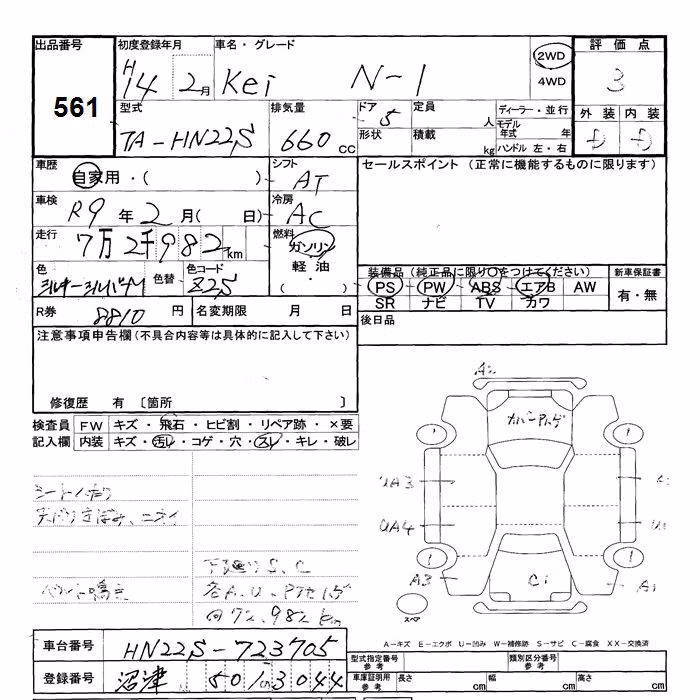 出品番号 初度登録年月 車名・グレード 評価点
561
H14 2月 Kei N-1 2WD 4WD 3
型式 排気量 ドア 定員 ディーラー・並行 外装 内装
TA-HN22S 660 CC 5 人 モデル年式 年 D D
形状 積載 kg ハンドル 左・右
車歴 シフト セールスポイント (正常に機能するものに限ります)
自家用・( ) AT
車検 冷房
R9年2月( 日) AC
走行 燃料
7万2千982km ガソリン
色 色替 色コード 軽油 装備品(純正品に限り○をつけてください) 新車保証書
シルキーシルバーM Z2S ( ) PS PW ABS エアB AW 有・無
SR ナビ TV カワ
R券 8810円 名変期限 月 日 後日品
注意事項申告欄(不具合内容等は具体的に記入して下さい)
修復歴 有 〔箇所 〕
検査員 FW キズ・飛石・ヒビ割・リペア跡・×要
記入欄 内装 キズ・汚レ・コゲ・穴・スレ・キレ・破レ
1 1
UA3
UA4
下廻りS、C
A3 C1 A1
1 1
スペア
A-キズ E-エクボ U-凹み W-補修跡 S-サビ C-腐食 XX-交換済
車台番号 HN22S-723705
型式指定番号 参考 類別区分番号 参考
登録番号 沼津 501 3044
車庫証明用 参考 長さ cm 幅 cm 高さ cm